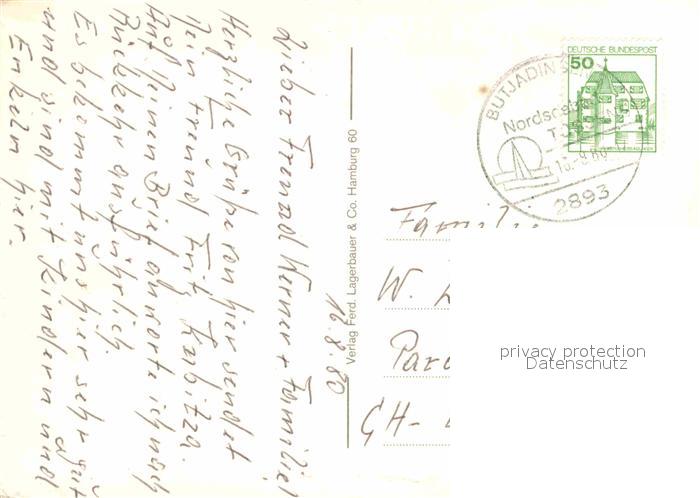 16.8.80
Lieber Freund Werner + Familie!
Herzliche Grüße von hier sendet
Dein Freund Fritz
Auf Deinen Brief antworte ich nach
Rückkehr ausführlich.
Es bekommt uns hier sehr gut
und sind mit Kindern und
Enkeln hier.
Verlag Ferd. Lagerbauer & Co. Hamburg 60
DEUTSCHE BUNDESPOST
50
BUTJADINGEN
Nordseebad
2893
Familie
W.
CH-
privacy protection
Datenschutz